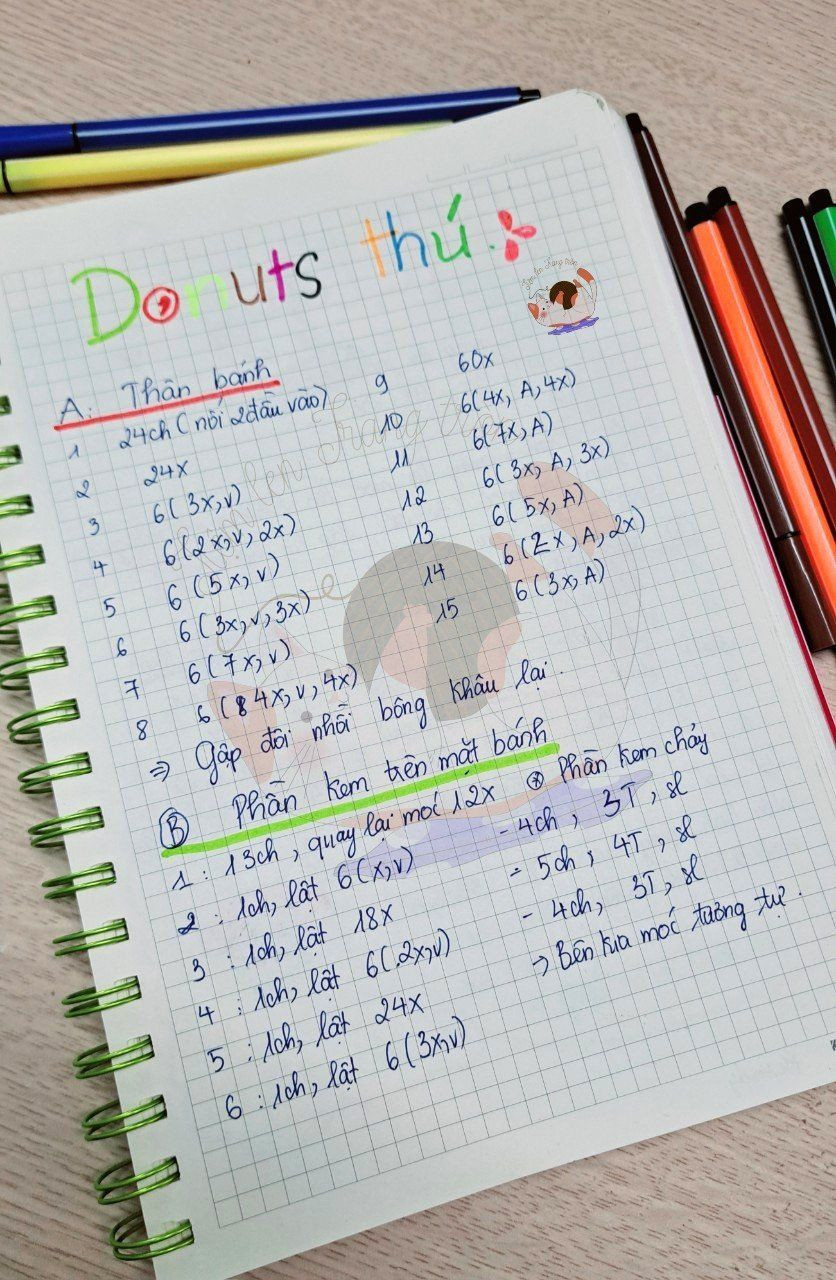 Donuts thú.
A: Thân bánh
1 24ch (nối 2 đầu vào)
2 24x
3 6(3x,v)
4 6(2x,v,2x)
5 6(5x,v)
6 6(3x,v,3x)
7 6(7x,v)
8 6(4x,v,4x)
9 60x
10 6(4x,A,4x)
11 6(7x,A)
12 6(3x,A,3x)
13 6(5x,A)
14 6(2x,A,2x)
15 6(3x,A)
⇒ Gấp đôi nhồi bông khâu lại.
B Phần kem trên mặt bánh
1: 13ch, quay lại móc 12x
2: 1ch, lật 6(x,v)
3: 1ch, lật 18x
4: 1ch, lật 6(2x,v)
5: 1ch, lật 24x
6: 1ch, lật 6(3x,v)
* Phần kem chảy
- 4ch, 3T, sl
- 5ch, 4T, sl
- 4ch, 3T, sl
⇒ Bên kia móc tương tự.